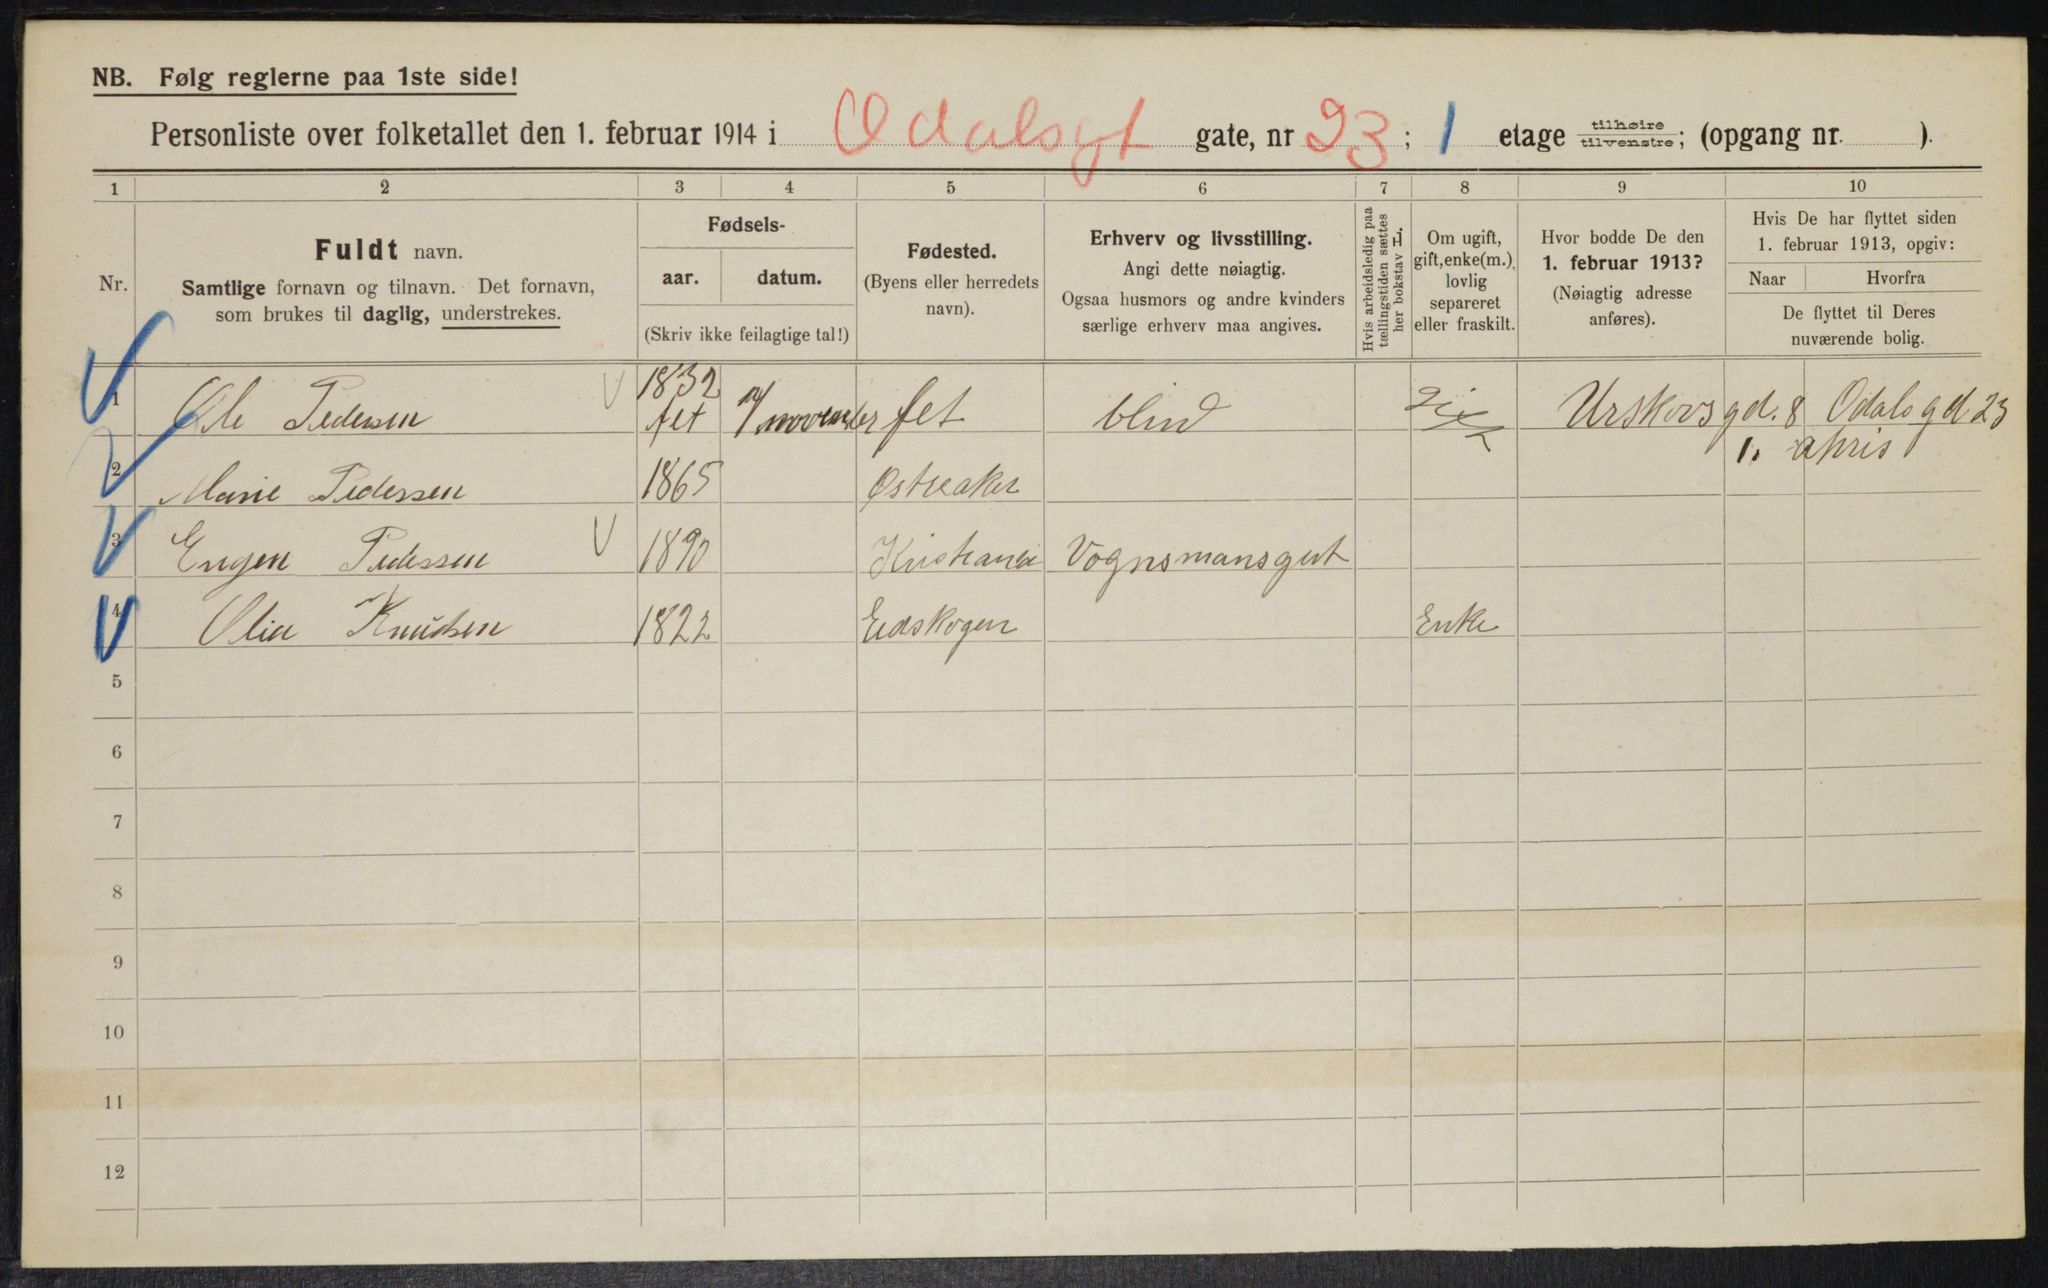 NB. Følg reglerne paa 1ste side!
Personliste over folketallet den 1. februar 1914 i Odalsgt gate, nr 23; 1 etage tilhøire tilvenstre; (opgang nr. ).
1 2 3 4 5 6 7 8 9 10
Nr.
Fuldt navn.
Samtlige fornavn og tilnavn. Det fornavn,
som brukes til daglig, understrekes.
Fødsels-
aar. datum.
(Skriv ikke feilagtige tal!)
Fødested.
(Byens eller herredets
navn).
Erhverv og livsstilling.
Angi dette nøiagtig.
Ogsaa husmors og andre kvinders
særlige erhverv maa angives.
Hvis arbeidsledig paa
tællingstiden sættes
her bokstav H.
Om ugift,
gift, enke(m.),
lovlig
separeret
eller fraskilt.
Hvor bodde De den
1. februar 1913?
(Nøiagtig adresse
anføres).
Hvis De har flyttet siden
1. februar 1913, opgiv:
Naar Hvorfra
De flyttet til Deres
nuværende bolig.
1 Ole Pedersen 1832 november fet blind Urskovsgd. 8 Odalsgd 23
fet 1.
2 Marie Pedersen 1865 Østreaker
3 Engen Pedersen 1890 Kristiania Vognsmansgut
4 Olia Knudsen 1822 Eidskogen Enke
5
6
7
8
9
10
11
12